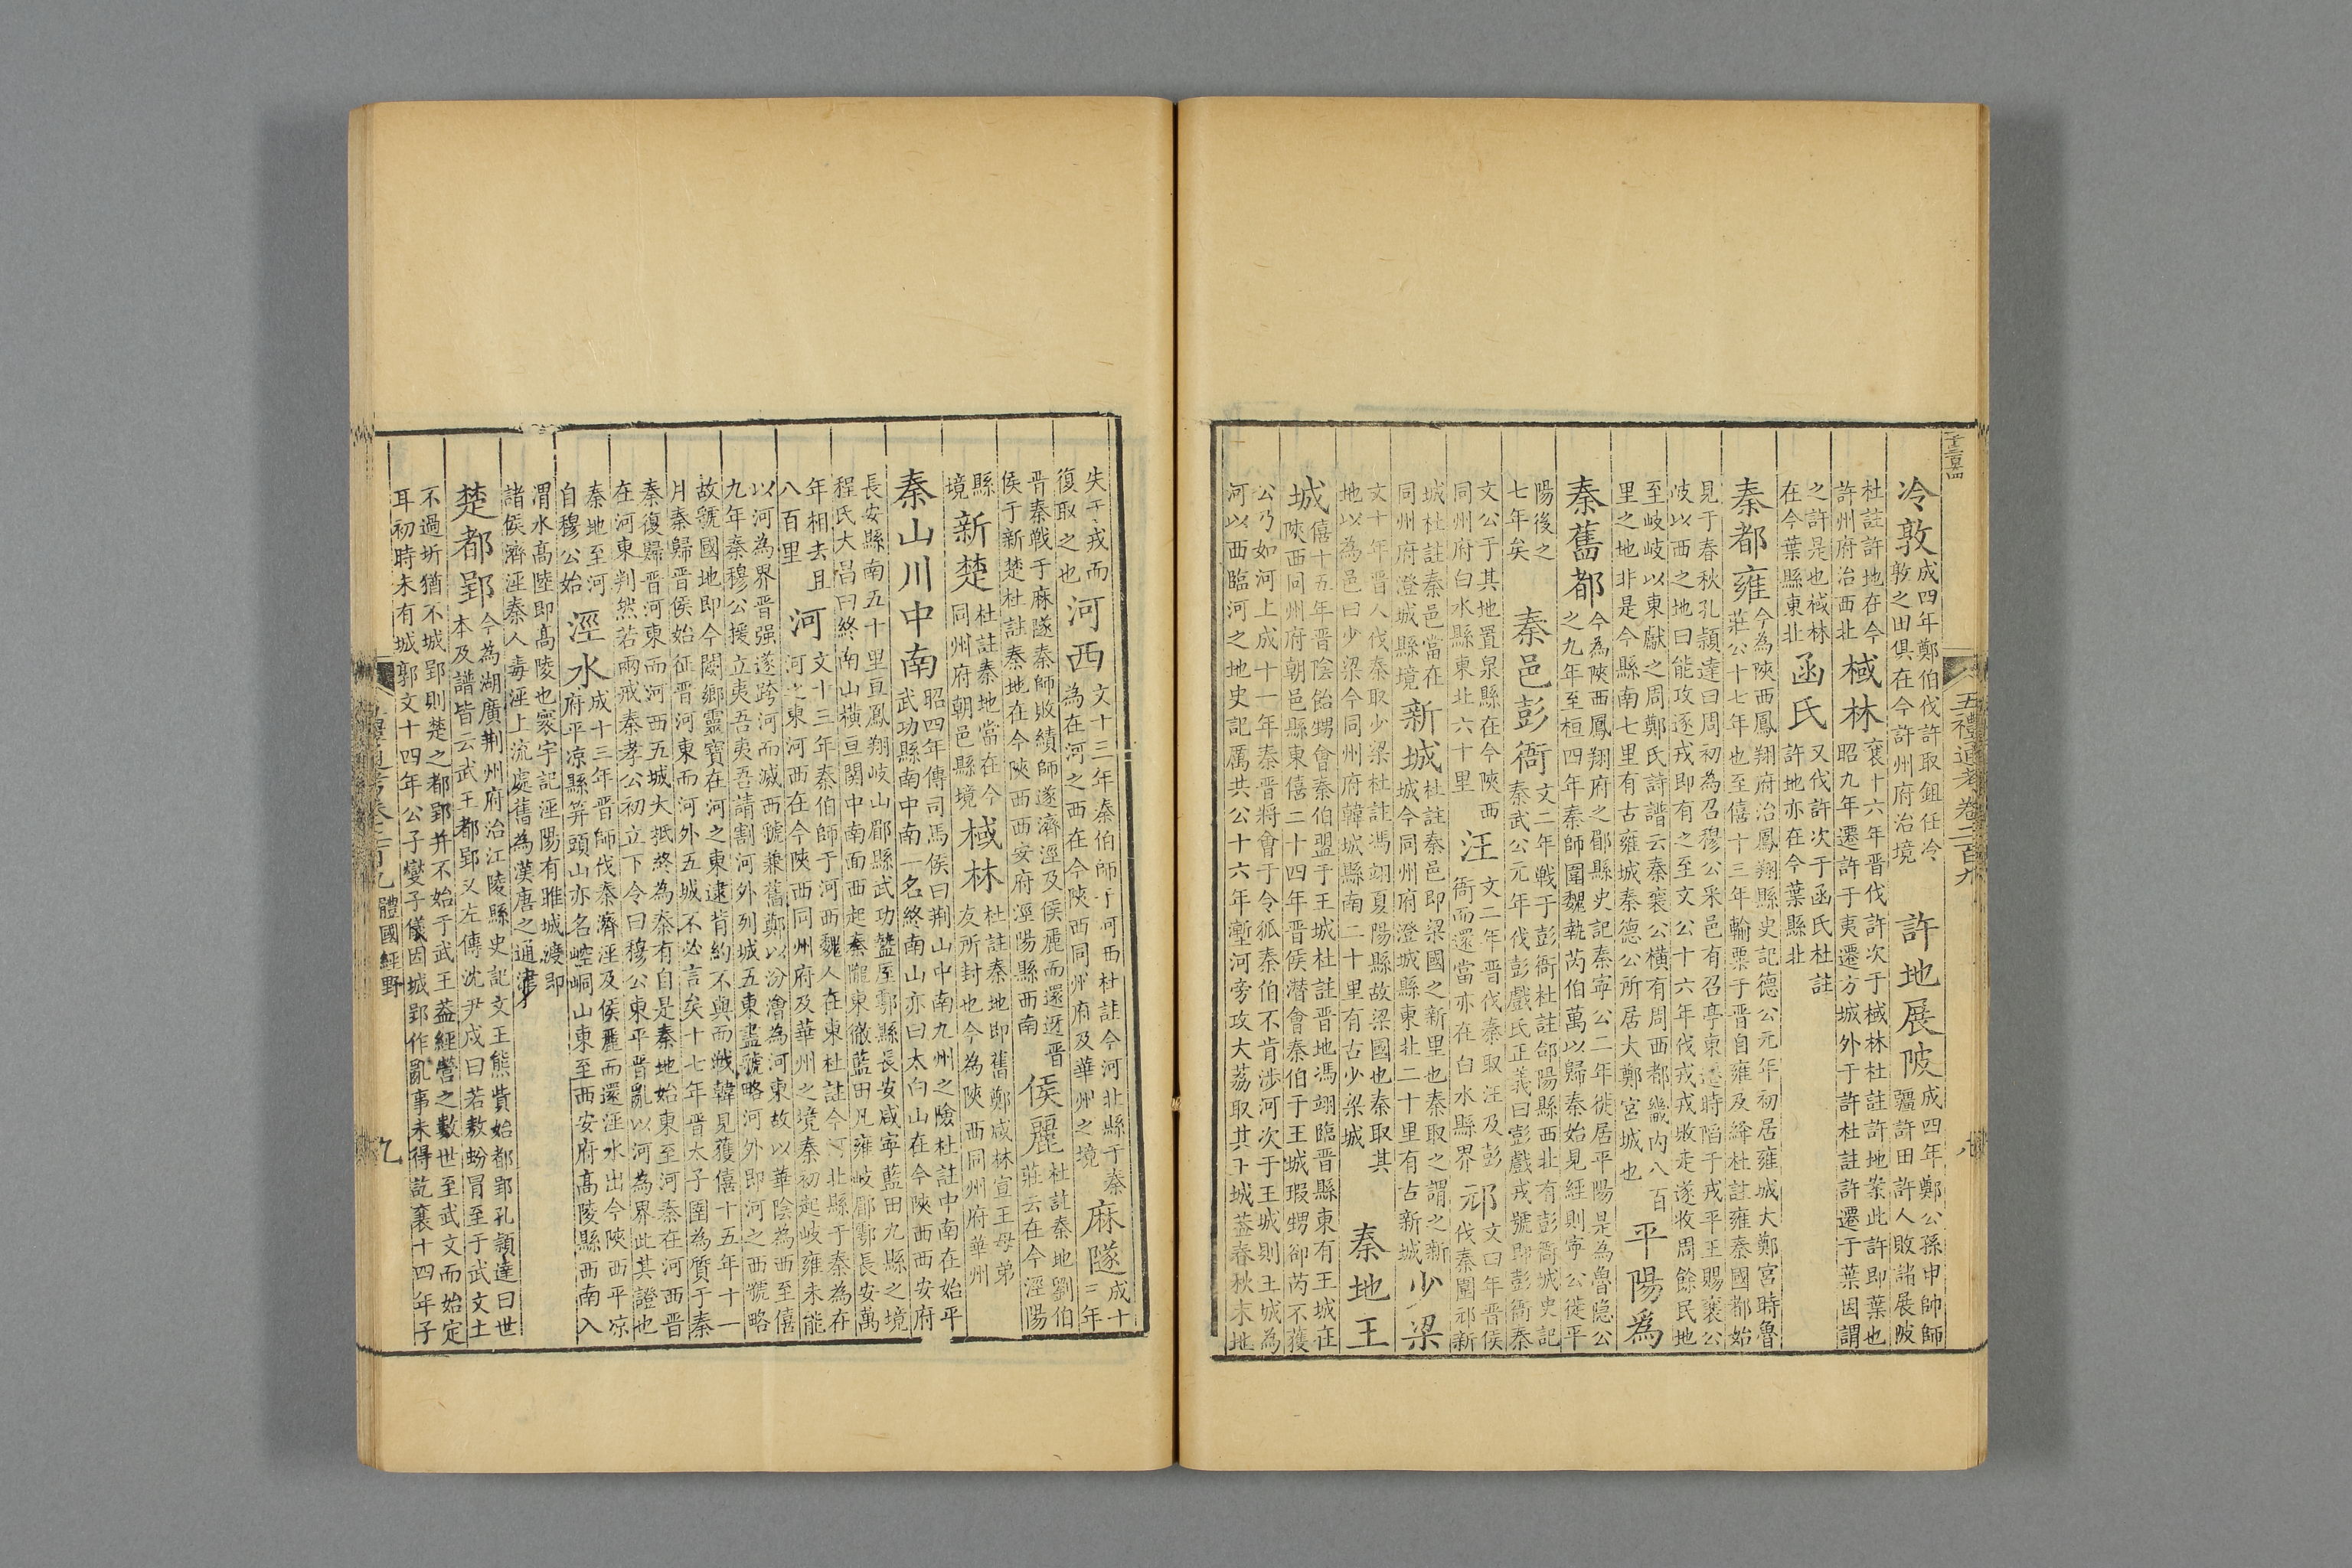 五禮通考卷二百九
冷敦成四年鄭伯伐許取鉏任冷
敦之田俱在今許州府治境
許地展陂成四年鄭公孫申帥師
疆許田許人敗諸展陂
杜註許地在今
許州府治西北
棫林襄十六年晉伐許次于棫林杜註許地案此許即葉也
昭九年遷許于夷遷方城外于許杜註許遷于葉因謂
之許是也棫林
在今葉縣東北
函氏又伐許次于函氏杜註
許地亦在今葉縣北
秦都雍今為陝西鳳翔府治鳳翔縣史記德公元年初居雍城大鄭宮時魯
莊公十七年也至僖十三年輸粟于晉自雍及絳杜註雍秦國都始
見于春秋孔頴達曰周初為召穆公采邑有召亭東遷時陷于戎平王賜襄公
岐以西之地曰能攻逐戎即有之至文公十六年伐戎戎敗走遂收周餘民地
至岐岐以東獻之周鄭氏詩譜云秦襄公橫有周西都畿內八百
里之地非是今縣南七里有古雍城秦德公所居大鄭宮城也
平陽爲
秦舊都今為陝西鳳翔府之郿縣史記秦寧公二年徙居平陽是為魯隱公
之九年至桓四年秦師圍魏執芮伯萬以歸秦始見經則寧公徙平
陽後之
七年矣
秦邑彭衙文二年戰于彭衙杜註郃陽縣西北有彭衙城史記
秦武公元年伐彭戲氏正義曰彭戲戎號即彭衙秦
文公于其地置泉縣在今陝西
同州府白水縣東北六十里
汪文二年晉伐秦取汪及彭
衙而還當亦在白水縣界
邧文四年晉侯
伐秦圍邧新
城杜註秦邑當在
同州府澄城縣境
新城杜註秦邑即梁國之新里也秦取之謂之新
城今同州府澄城縣東北二十里有古新城
少梁
文十年晉人伐秦取少梁杜註馮翊夏陽縣故梁國也秦取其
地以為邑曰少梁今同州府韓城縣南二十里有古少梁城
秦地王
城僖十五年晉陰飴甥會秦伯盟于王城杜註晉地馮翊臨晉縣東有王城在
陝西同州府朝邑縣東僖二十四年晉侯潛會秦伯于王城瑕甥郤芮不獲
公乃如河上成十一年秦晉將會于令狐秦伯不肯涉河次于王城則王城為
河以西臨河之地史記厲共公十六年塹河旁攻大荔取其王城葢春秋末地
失于戎而
復取之也
河西文十三年秦伯師于河西杜註今河北縣于秦
為在河之西在今陝西同州府及華州之境
麻隧成十
三年
晉秦戰于麻隧秦師敗績師遂濟涇及侯麗而還迓晉
侯于新楚杜註秦地在今陝西西安府涇陽縣西南
侯麗杜註秦地劉伯
莊云在今涇陽
縣
境
新楚杜註秦地當在今
同州府朝邑縣境
棫林杜註秦地即舊鄭咸林宣王母弟
友所封也今為陝西同州府華州
秦山川中南昭四年傳司馬侯曰荆山中南九州之險杜註中南在始平
武功縣南中南一名終南山亦曰太白山在今陝西西安府
長安縣南五十里亘鳳翔岐山郿縣武功盩厔鄠縣長安咸寧藍田九縣之境
程氏大昌曰終南山橫亘關中南面西起秦隴東徹藍田凡雍岐郿鄠長安萬
年相去且
八百里
河文十三年秦伯師于河西魏人在東杜註今河北縣于秦為在
河之東河西在今陝西同州府及華州之境秦初起岐雍未能
以河為界晉强遂跨河而滅西虢兼舊鄭以汾澮為河東故以華陰為西至僖
九年秦穆公援立夷吾夷吾請割河外列城五東盡虢略河外即河之西虢略
故虢國地即今閿鄉靈寶在河之東逮背約不與而戰韓見獲僖十五年十一
月秦歸晉侯始征晉河東而河外五城不必言矣十七年晉太子圉為質于秦
秦復歸晉河東而河西五城大抵終為秦有自是秦地始東至河秦在河西晉
在河東判然若兩戒秦孝公初立下令曰穆公東平晉亂以河為界此其證也
秦地至河
自穆公始
涇水成十三年晉師伐秦濟涇及侯麗而還涇水出今陝西平凉
府平凉縣筓頭山亦名崆峒山東至西安府高陵縣西南入
渭水高陸即高陵也寰宇記涇陽有睢城渡即
諸侯濟涇秦人毒涇上流處舊為漢唐之通津
楚都郢今為湖廣荆州府治江陵縣史記文王熊貲始都郢孔頴達曰世
本及譜皆云武王都郢又左傳沈尹戌曰若敖蚡冒至于武文土
不過圻猶不城郢則楚之都郢并不始于武王葢經營之數世至武文而始定
耳初時未有城郭文十四年公子燮子儀因城郢作亂事未得訖襄十四年子
體國經野
九